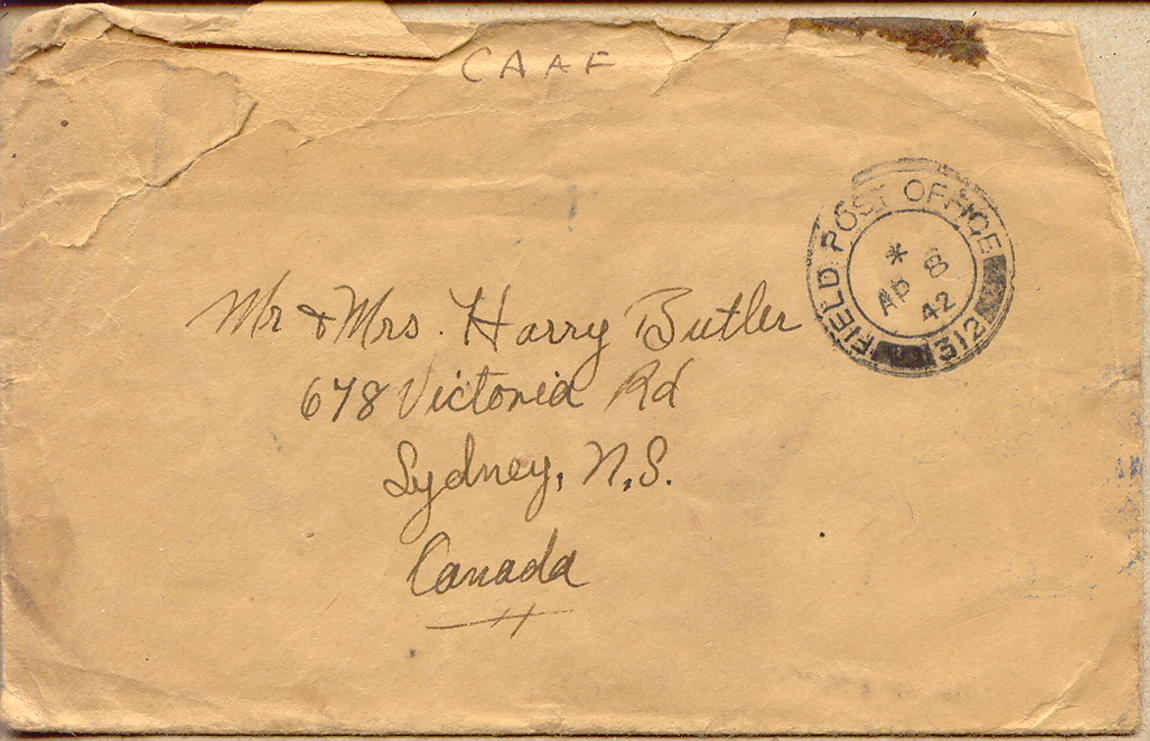 CAAF
FIELD POST OFFICE
* 8
AP 42
312
Mr & Mrs. Harry Butler
678 Victoria Rd
Sydney, N.S.
Canada